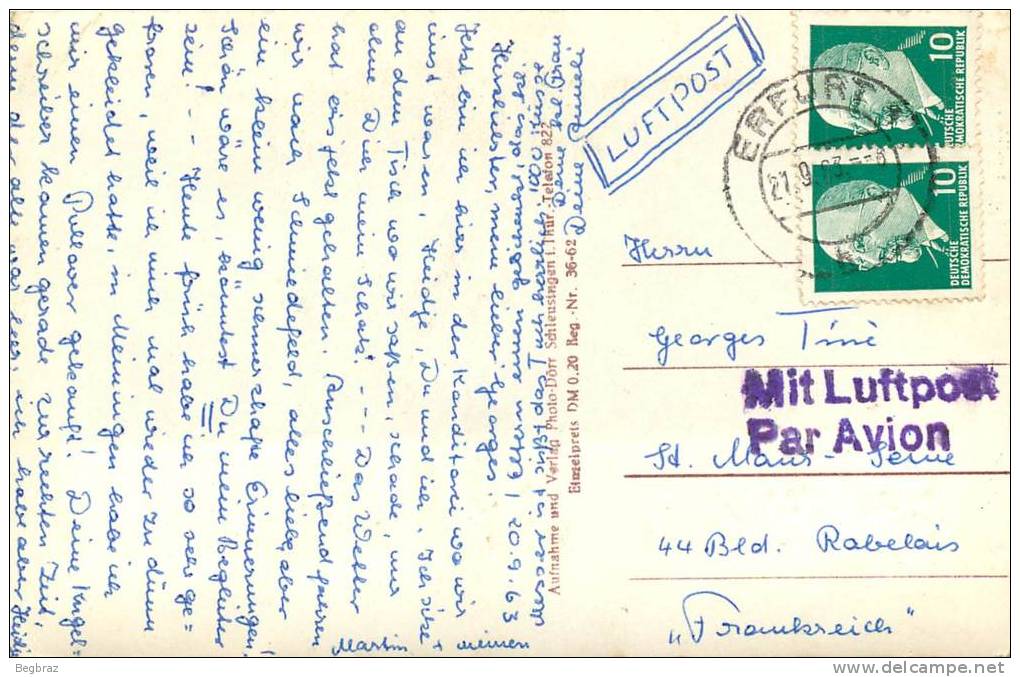 Herzliebster, mein lieber Georges!
20.9.63
Jetzt bin ich hier in der Konditorei wo wir
einst waren, Heidje, Du und ich. Ich sitze
an dem Tisch wo wir saßen, schade, nur
ohne Dich mein Schatz! - - Das Wetter
hat bis jetzt gehalten. Anschließend fahren
wir nach Schmiedefeld, alles liebe, aber
ein klein wenig schmerzhafte Erinnerungen!
Schön wäre es, könntest Du mein Begleiter
sein! - - Heute früh habe ich so sehr ge=
froren, weil ich mich mal wieder zu dünn
gekleidet hatte, in Meiningen habe ich
mir einen Pullover gekauft! Deine
schreiber kamen gerade zur rechten Zeit,
denn der alte war leer, ich habe aber
Heidje
Martin
+
meinen
Deine Frau
LUFTPOST
Aufnahme und Verlag Photo-Dörr Schleusingen i. Thür. Telefon 822
Einzelpreis DM 0.20 Reg.-Nr. 36-62
10
DEUTSCHE
DEMOKRATISCHE REPUBLIK
10
DEUTSCHE
DEMOKRATISCHE REPUBLIK
ERFURT
21.9.63
Herrn
Georges Tiné
Mit Luftpost
Par Avion
St. Maur - Seine
44 Bld. Rabelais
„Frankreich"
Begbraz
delcampe.net